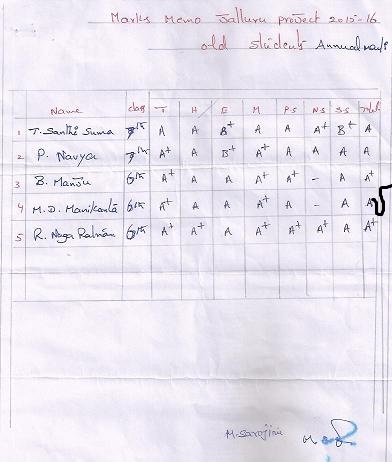 Marks Memo Jalluru project 2015-16
old students Annual marks
Name class T H E M P.S N.S S.S Total
1 T. Santhi Suma 7th A A B+ A A A+ B+ A
2 P. Navya 7th A+ A B+ A+ A A A A
3 B. Manju 6th A+ A A A+ A - A A+
4 M.D. Manikanta 6th A+ A A A+ A - A A
5 R. Naga Ratnam 6th A+ A+ A A+ A+ A+ A A+
M. Sarojini